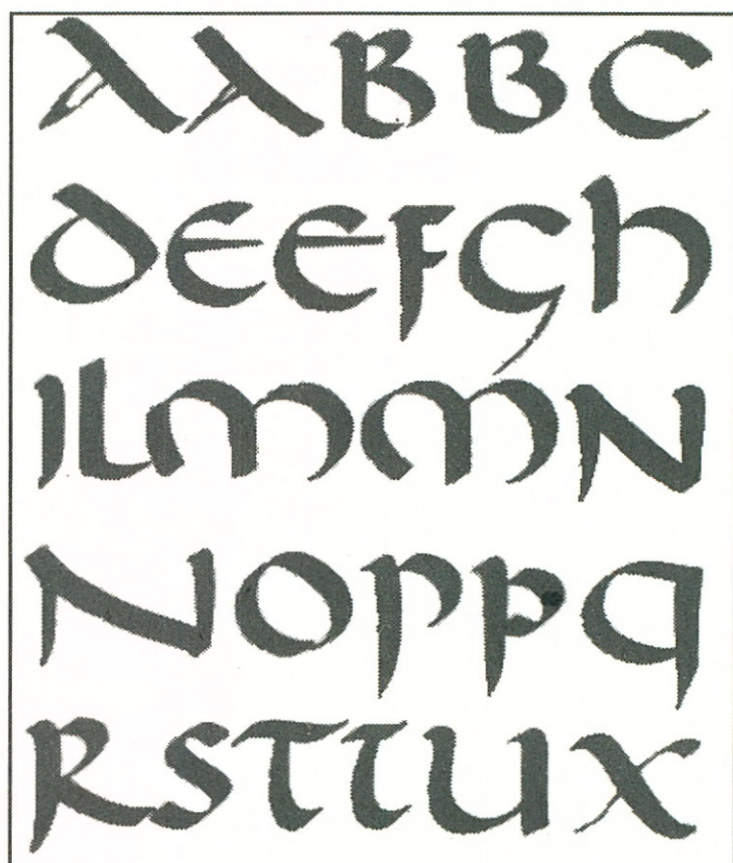 AABBC
DEEFGH
ILMMN
NOPPQ
RSTTUX